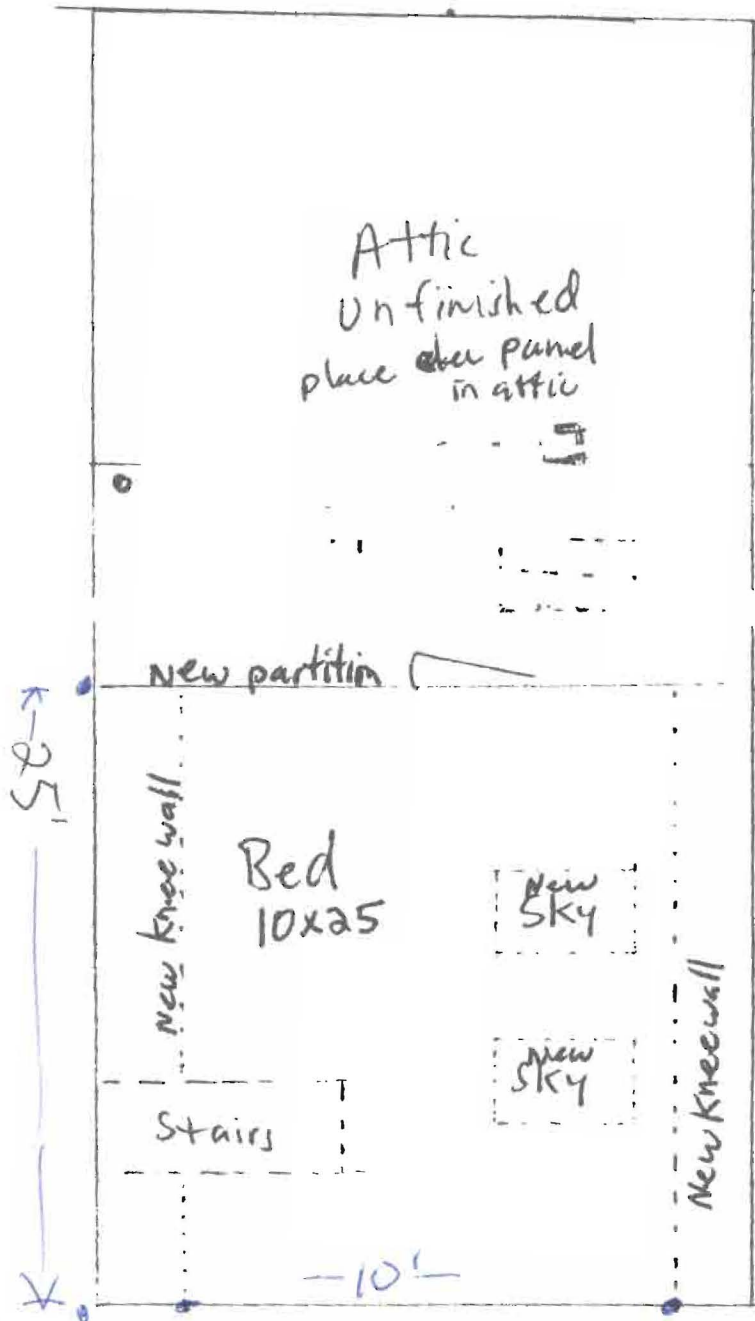 Attic
Unfinished
place elec panel
in attic
New partition
25'
New Kneewall
Bed
10x25
New
SKY
New
SKY
New Kneewall
Stairs
10'